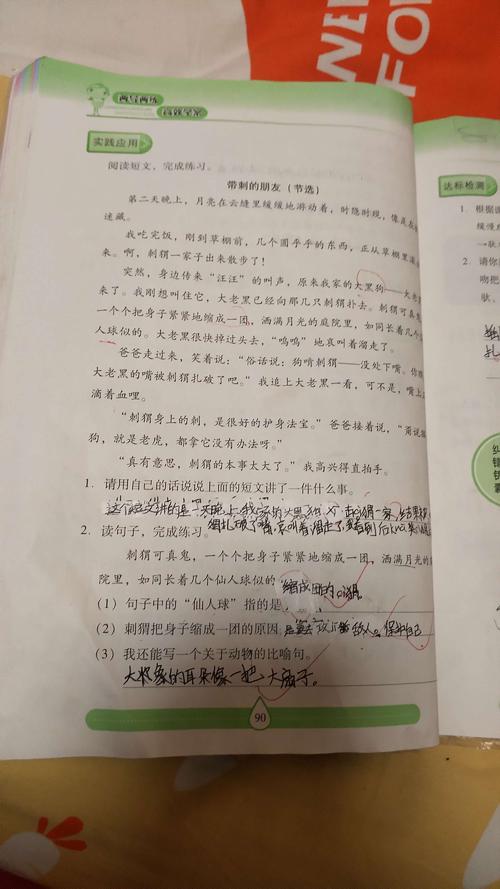 NEW
FOR
两导两练
高效学案
实践应用
阅读短文，完成练习。
带刺的朋友（节选）
第二天晚上，月亮在云缝里缓缓地游动着，时隐时现，像是在
迷藏。
我吃完饭，刚到草棚前，几个圆乎乎的东西，正从草棚里滚
来。啊，刺猬一家子出来散步了！
突然，身边传来“汪汪”的叫声，原来我家的大黑狗——大老
来了。我刚想叫住它，大老黑已经向那几只刺猬扑去。刺猬可真
一个个把身子紧紧地缩成一团，洒满月光的庭院里，如同长着几个
人球似的。大老黑很快掉过头去，“呜呜”地哀叫着溜走了。
爸爸走过来，笑着说：“俗话说：狗啃刺猬——没处下嘴。你
大老黑的嘴被刺猬扎破了吧。”我追上大老黑一看，可不是，嘴上
滴着血哩。
“刺猬身上的刺，是很好的护身法宝。”爸爸接着说，“甭说
狗，就是老虎，都拿它没有办法呀。”
“真有意思，刺猬的本事大大了。”我高兴得直拍手。
1. 请用自己的话说说上面的短文讲了一件什么事。
这个短文讲的是
2. 读句子，完成练习。
刺猬可真鬼，一个个把身子紧紧地缩成一团，洒满月光的
院里，如同长着几个仙人球似的
（1）句子中的“仙人球”指的是
缩成团的刺猬
（2）刺猬把身子缩成一团的原因
敌人。保护自己
（3）我还能写一个关于动物的比喻句。
大象的耳朵像一把大扇子。
90
达标检测
1. 根据
缓慢
2. 请你
吻把